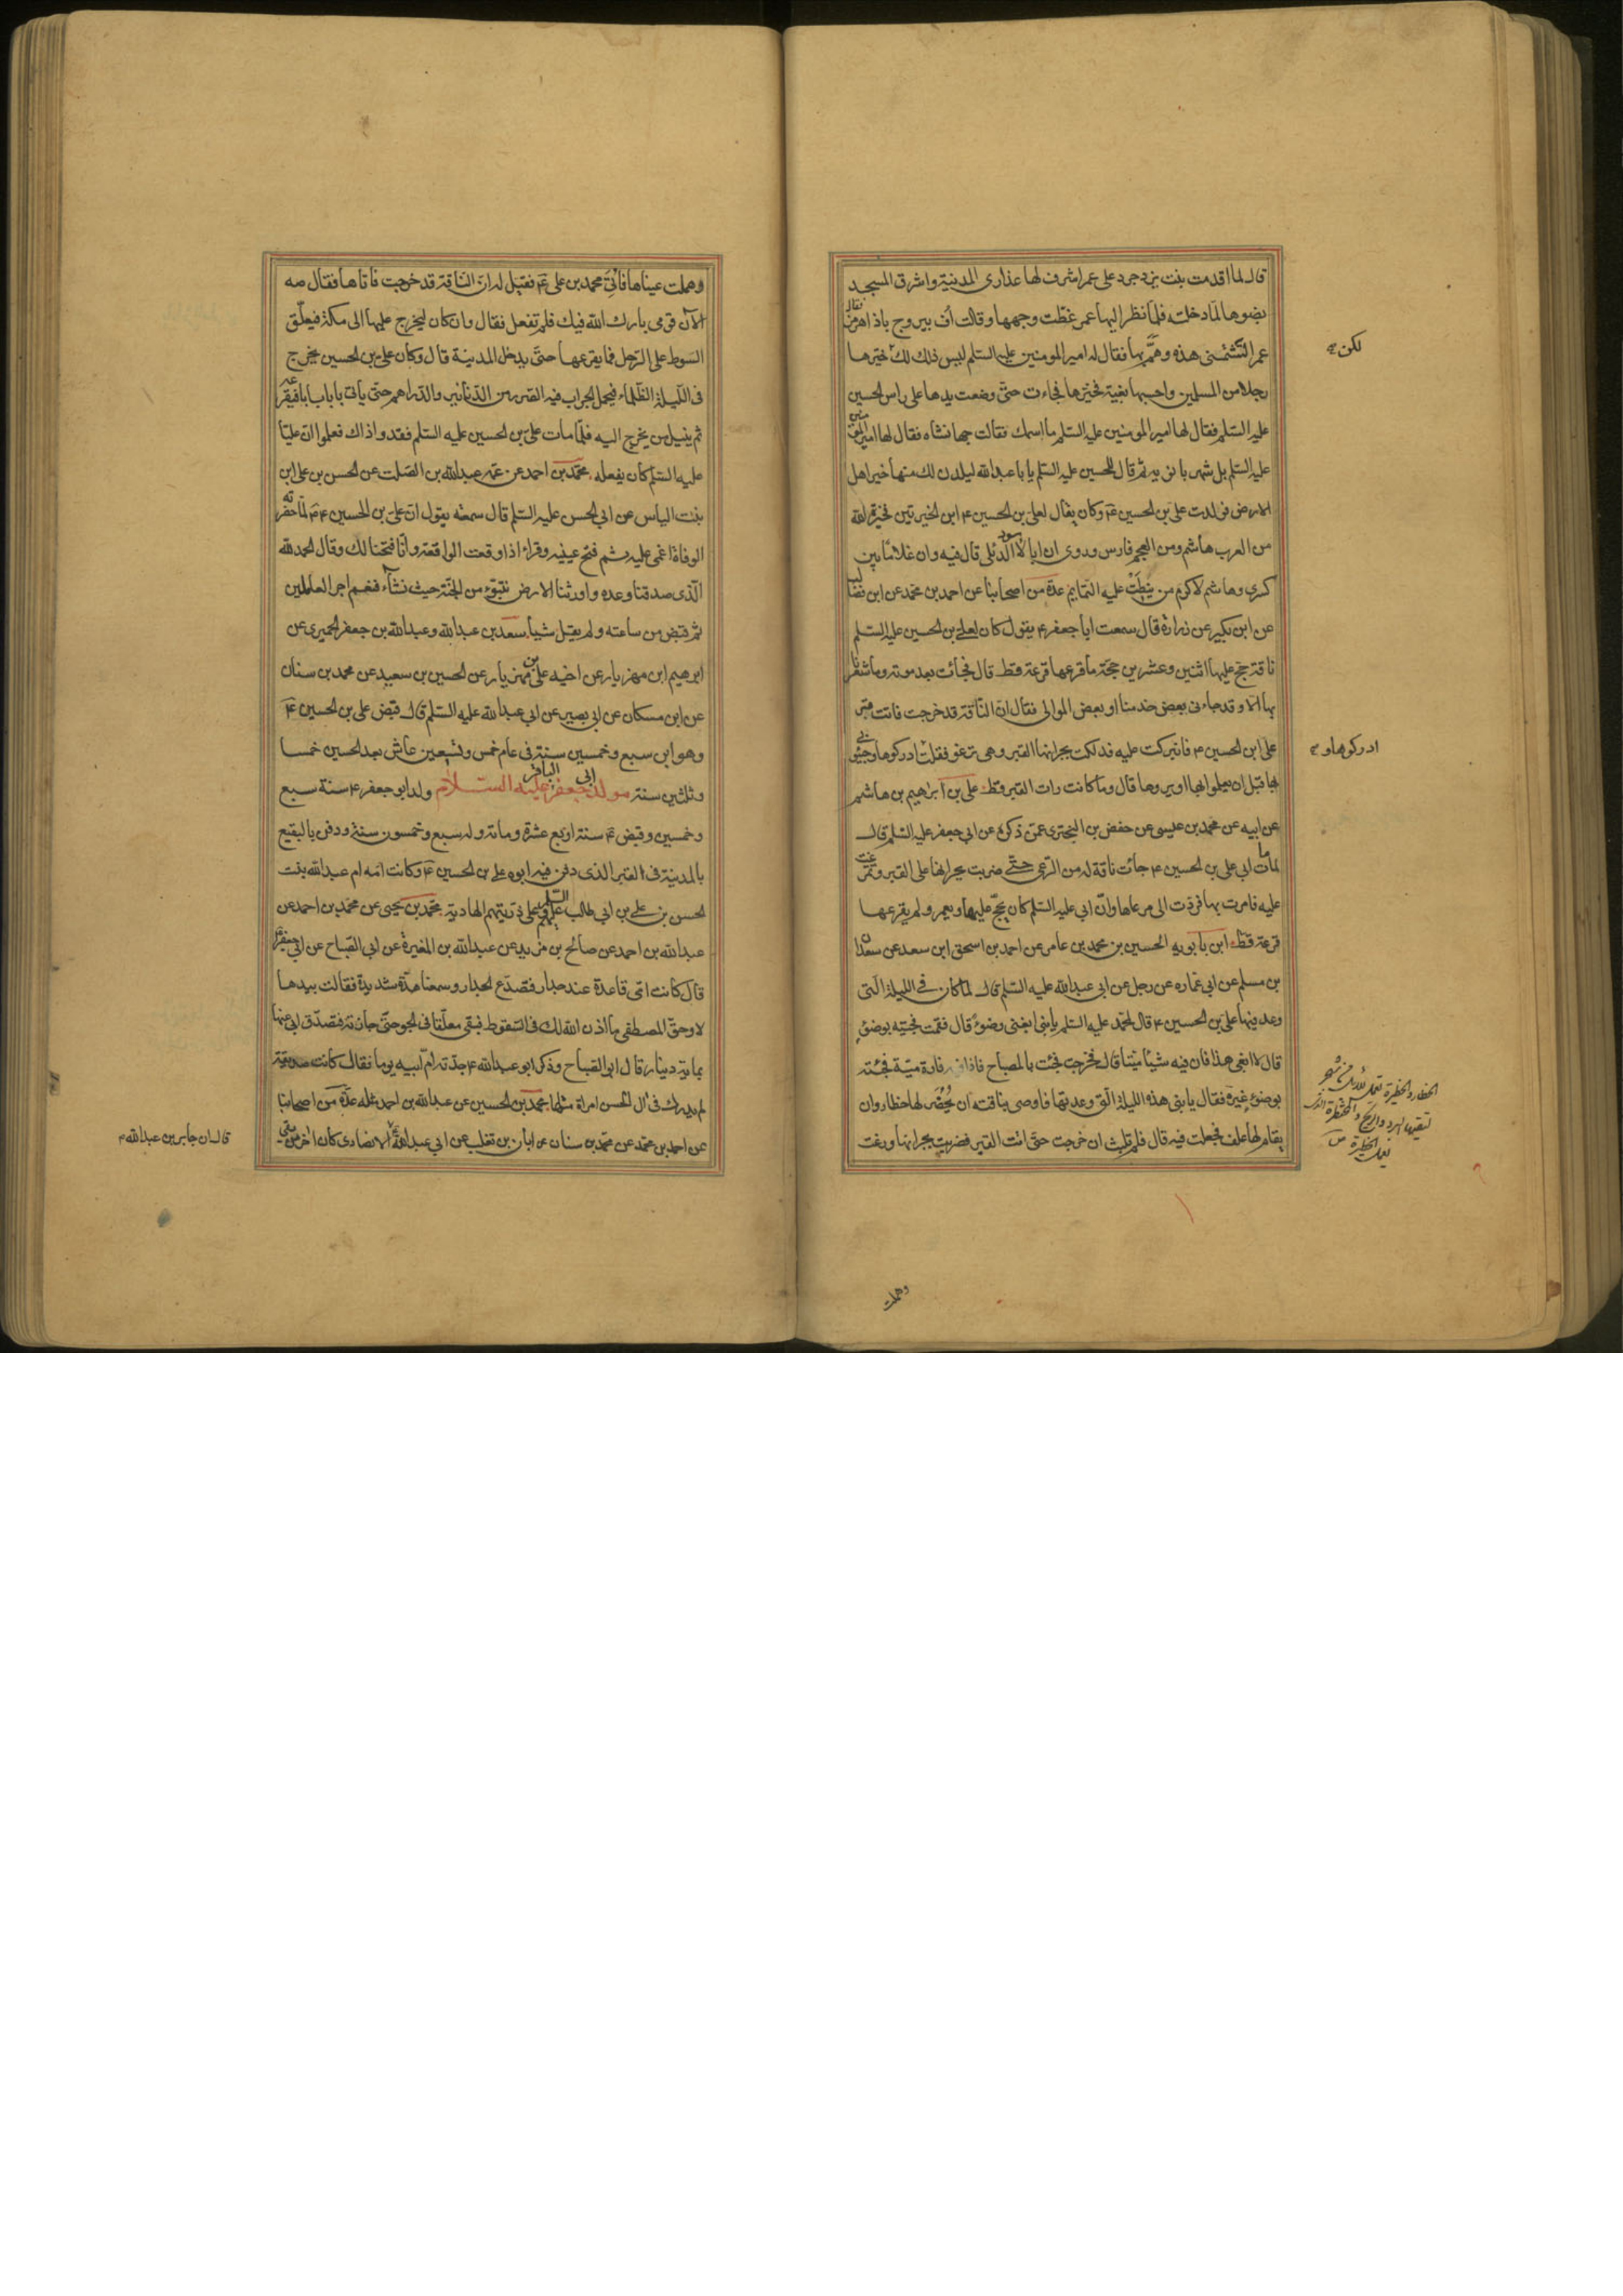 قال لما اقدمت بنت يزدجرد على عمر اشرف لها عذارى المدينة واشرق المسجد
بضوها لما دخلته فلما نظر اليها عمر غطت وجهها وقالت اف بيروج باذا هرمز فقال
عمر اتشتمنى هذه وهمّ بها فقال له امير المومنين عليه السلم ليس ذلك لك خيّرها
رجلا من المسلمين واحسبها بفيئه فخيّرها فجاءت حتى وضعت يدها على راس الحسين
عليه السلم فقال لها امير المومنين عليه السلم ما اسمك فقالت جهانشاه فقال لها امير المؤمنين
عليه السلم بل شهربانويه ثم قال للحسين عليه السلم يا با عبد الله ليلدن لك منها خير اهل
الارض فولدت على بن الحسين ع وكان يقال لعلى بن الحسين ع ابن الخيرتين فخيرة الله
من العرب هاشم ومن العجم فارس وروى ان ابا الاسود الدئلى قال فيه وان غلاما بين
كسرى وهاشم لاكرم من نيطت عليه التمايم عدة من اصحابنا عن احمد بن محمد عن ابن فضال
عن ابن بكير عن زرارة قال سمعت ابا جعفر ع يقول كان لعلى بن الحسين عليه السلم
ناقة حج عليها اثنين وعشرين حجة ما قرعها قرعة قط قال فجائت بعد موته وما شعرنا
بها الا وقد جاءنى بعض خدمنا او بعض الموالى فقال ان الناقة قد خرجت فاتت قبر
على ابن الحسين ع فانبركت عليه فدلكت بجرانها القبر وهى ترغو فقلت ادركوها وجيئونى
لكن
ادركوها و
بها قبل ان يعلموا بها او يروها قال وما كانت رات القبر قط على بن ابراهيم بن هاشم
عن ابيه عن محمد بن عيسى عن حفص بن البخترى عمن ذكره عن ابى جعفر عليه السلم قال
لما مات ابى على بن الحسين ع جائت ناقة له من الرعى حتى ضربت بجرانها على القبر وتمرغت
عليه فامرت بها فردت الى مرعاها وان ابى عليه السلم كان يحج عليها ويعمر ولم يقرعها
قرعة قط ابن بابويه الحسين بن محمد بن عامر عن احمد بن اسحق ابن سعد عن سعدان
بن مسلم عن ابى عماره عن رجل عن ابى عبد الله عليه السلم قال لما كان فى الليلة التى
وعد فيها على بن الحسين ع قال لمحمد عليه السلم يا بنى ابغنى وضوء قال فقمت فجيته بوضوء
قال لا ابغى هذا فان فيه شيئا ميتا قال فخرجت فجئت بالمصباح فاذا فيه فارة ميتة فجئته
بوضوء غيره فقال يا بنى هذه الليلة التى وعدتها فاوصى بناقته ان يحضر لها حظار وان
يقام لها علف فجعلت فيه قال فلم تلبث ان خرجت حتى اتت القبر فضربت بجرانها ورغت
وهملت
وهملت عيناها فاتى محمد بن على ع فقيل له ان الناقة قد خرجت فاتاها فقال مه
الآن قومى بارك الله فيك فلم تفعل فقال وان كان ليخرج عليها الى مكة فيعلق
السوط على الرحل فما يقرعها حتى يدخل المدينة قال وكان على بن الحسين يخرج
فى الليلة الظلماء فيحمل الجراب فيه الصرر من الدنانير والدراهم حتى ياتى بابا بابا فيقرعه
ثم ينيل من يخرج اليه فلما مات على بن الحسين عليه السلم فقدوا ذاك فعلموا ان عليا
عليه السلم كان يفعله محمد بن احمد عن عمه عبد الله بن الصلت عن الحسن بن على ابن
بنت الياس عن ابى الحسن عليه السلم قال سمعته يقول ان على بن الحسين ع لما حضرته
الوفاة اغمى عليه ثم فتح عينيه وقرا اذا وقعت الواقعة وانا فتحنا لك وقال الحمد لله
الذى صدقنا وعده واورثنا الارض نتبوء من الجنة حيث نشاء فنعم اجر العاملين
ثم قبض من ساعته ولم يقل شيأ سعد بن عبد الله وعبد الله بن جعفر الحميرى عن
ابرهيم ابن مهزيار عن اخيه على بن مهزيار عن الحسين بن سعيد عن محمد بن سنان
عن ابن مسكان عن ابى بصير عن ابى عبد الله عليه السلم قال قبض على بن الحسين ع
وهو ابن سبع وخمسين سنة فى عام خمس وتسعين عاش بعد الحسين خمسا
وثلثين سنة مولد ابى جعفر الباقر عليه السلام ولد ابو جعفر ع سنة سبع
وخمسين وقبض ع سنة اربع عشرة ومائة وله سبع وخمسون سنة ودفن بالبقيع
بالمدينة فى القبر الذى دفن فيه ابوه على بن الحسين ع وكانت امه ام عبد الله بنت
الحسن بن على بن ابى طالب عليهم السلم وعلى ذريتهم الهادية محمد بن يحيى عن محمد بن احمد عن
عبد الله بن احمد عن صالح بن مزيد عن عبد الله بن المغيرة عن ابى الصباح عن ابى جعفر ع
قال كانت امى قاعدة عند جدار فتصدع الجدار وسمعنا هدة شديدة فقالت بيدها
لا وحق المصطفى ما اذن الله لك فى السقوط فبقى معلقا فى الجو حتى جازته فتصدق ابى عنها
بمائة دينار قال ابو الصباح وذكر ابو عبد الله ع جدته ام ابيه يوما فقال كانت صديقة
لم يدرك فى ال الحسن امراة مثلها محمد بن الحسين عن عبد الله بن احمد مثله عدة من اصحابنا
عن احمد بن محمد عن محمد بن سنان عن ابان بن تغلب عن ابى عبد الله ع الانصارى كان اخر من بقى
قال ان جابر بن عبد الله